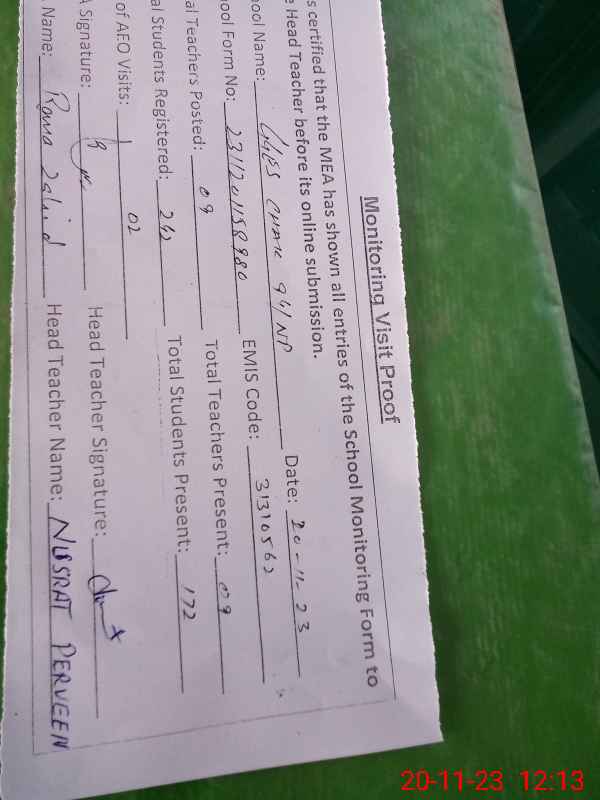 Monitoring Visit Proof
s certified that the MEA has shown all entries of the School Monitoring Form to
e Head Teacher before its online submission.
hool Name: CHAK 94/NP Date: 20-11-23
hool Form No: EMIS Code: 31310562
al Teachers Posted: 09 Total Teachers Present: 09
al Students Registered: Total Students Present: 172
of AEO Visits: 02
A Signature: Head Teacher Signature:
Name: Rana Head Teacher Name: NUSRAT PERVEEN
20-11-23 12:13